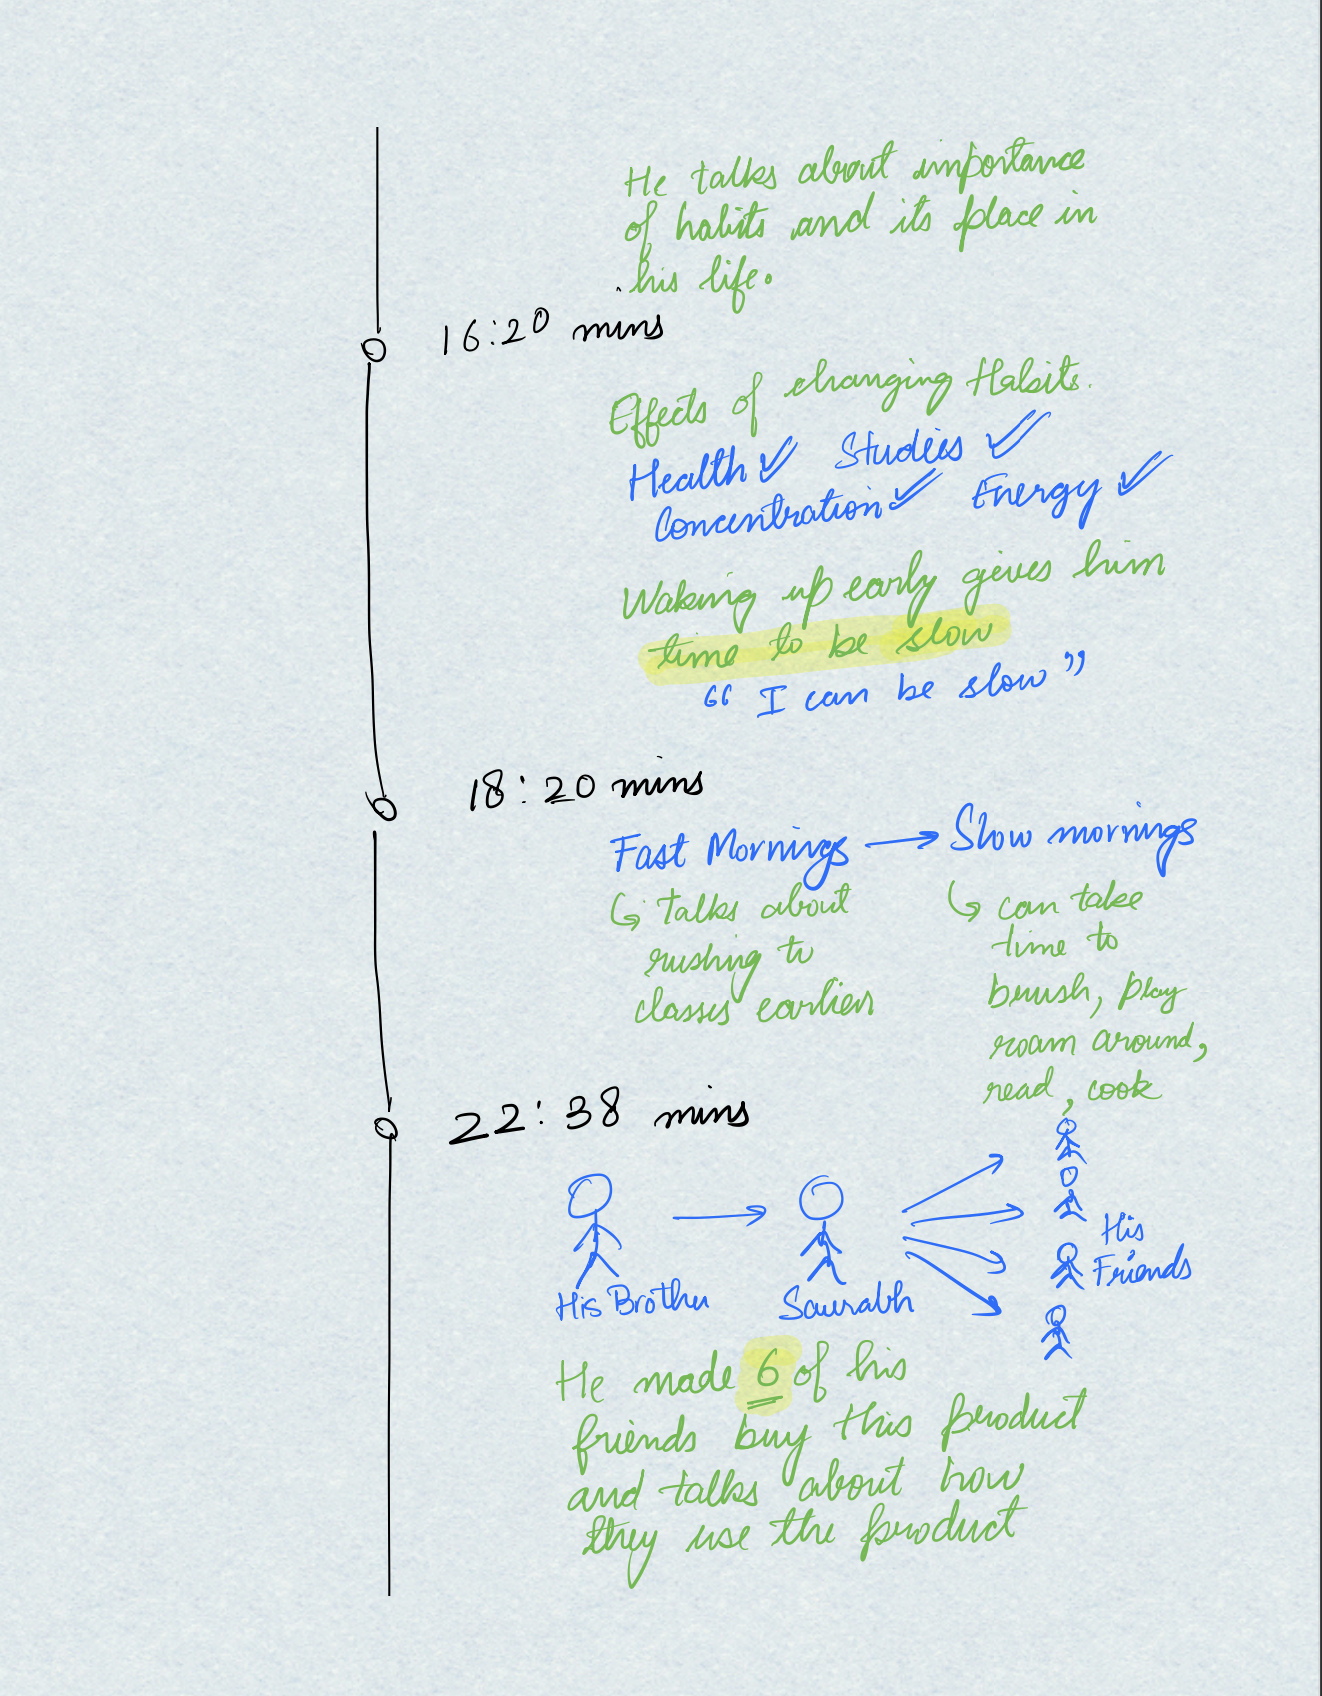 He talks about importance
of habits and its place in
his life.
16:20 mins
Effects of changing Habits.
Health ✓ Studies ✓
Concentration ✓ Energy ✓
Waking up early gives him
time to be slow
“ I can be slow ”
18:20 mins
Fast Mornings → Slow mornings
↳ talks about
rushing to
classes earlier
↳ can take
time to
brush, play
roam around,
read, cook
22:38 mins
His Brother
Saurabh
His
Friends
He made 6 of his
friends buy this product
and talks about how
they use the product